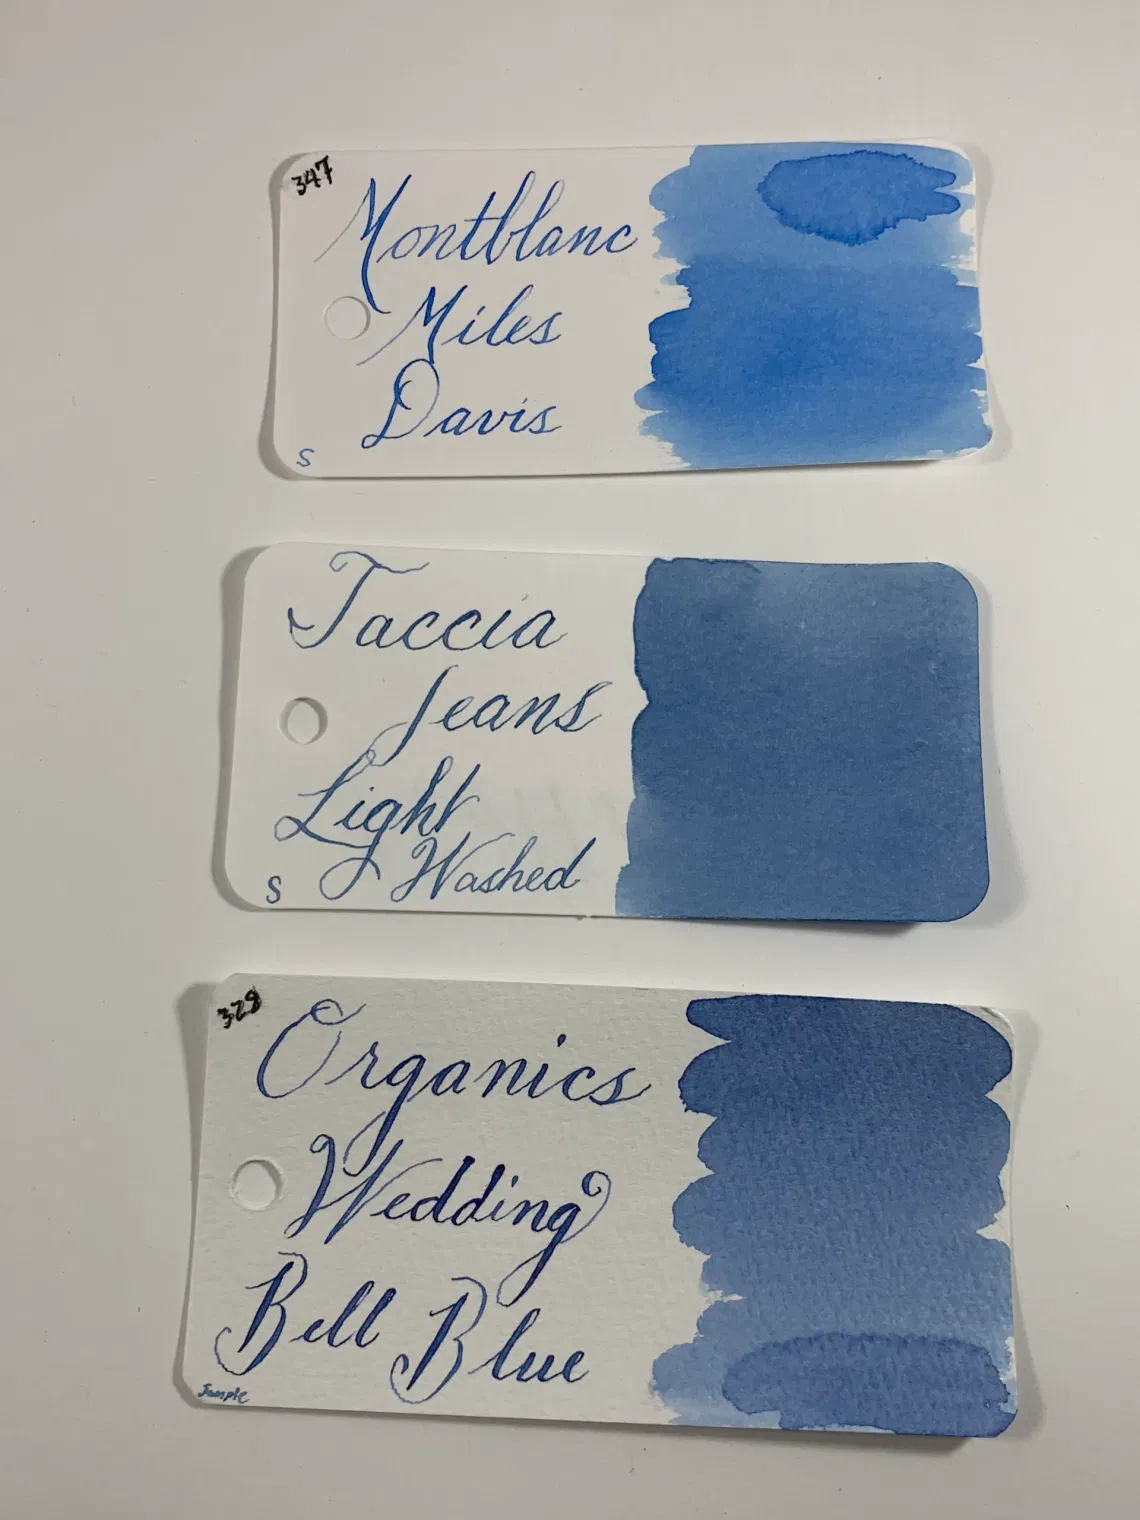 347
Montblanc
Miles
Davis
S
Taccia
Jeans
Light
Washed
S
328
Organics
Wedding
Bell Blue
Sample